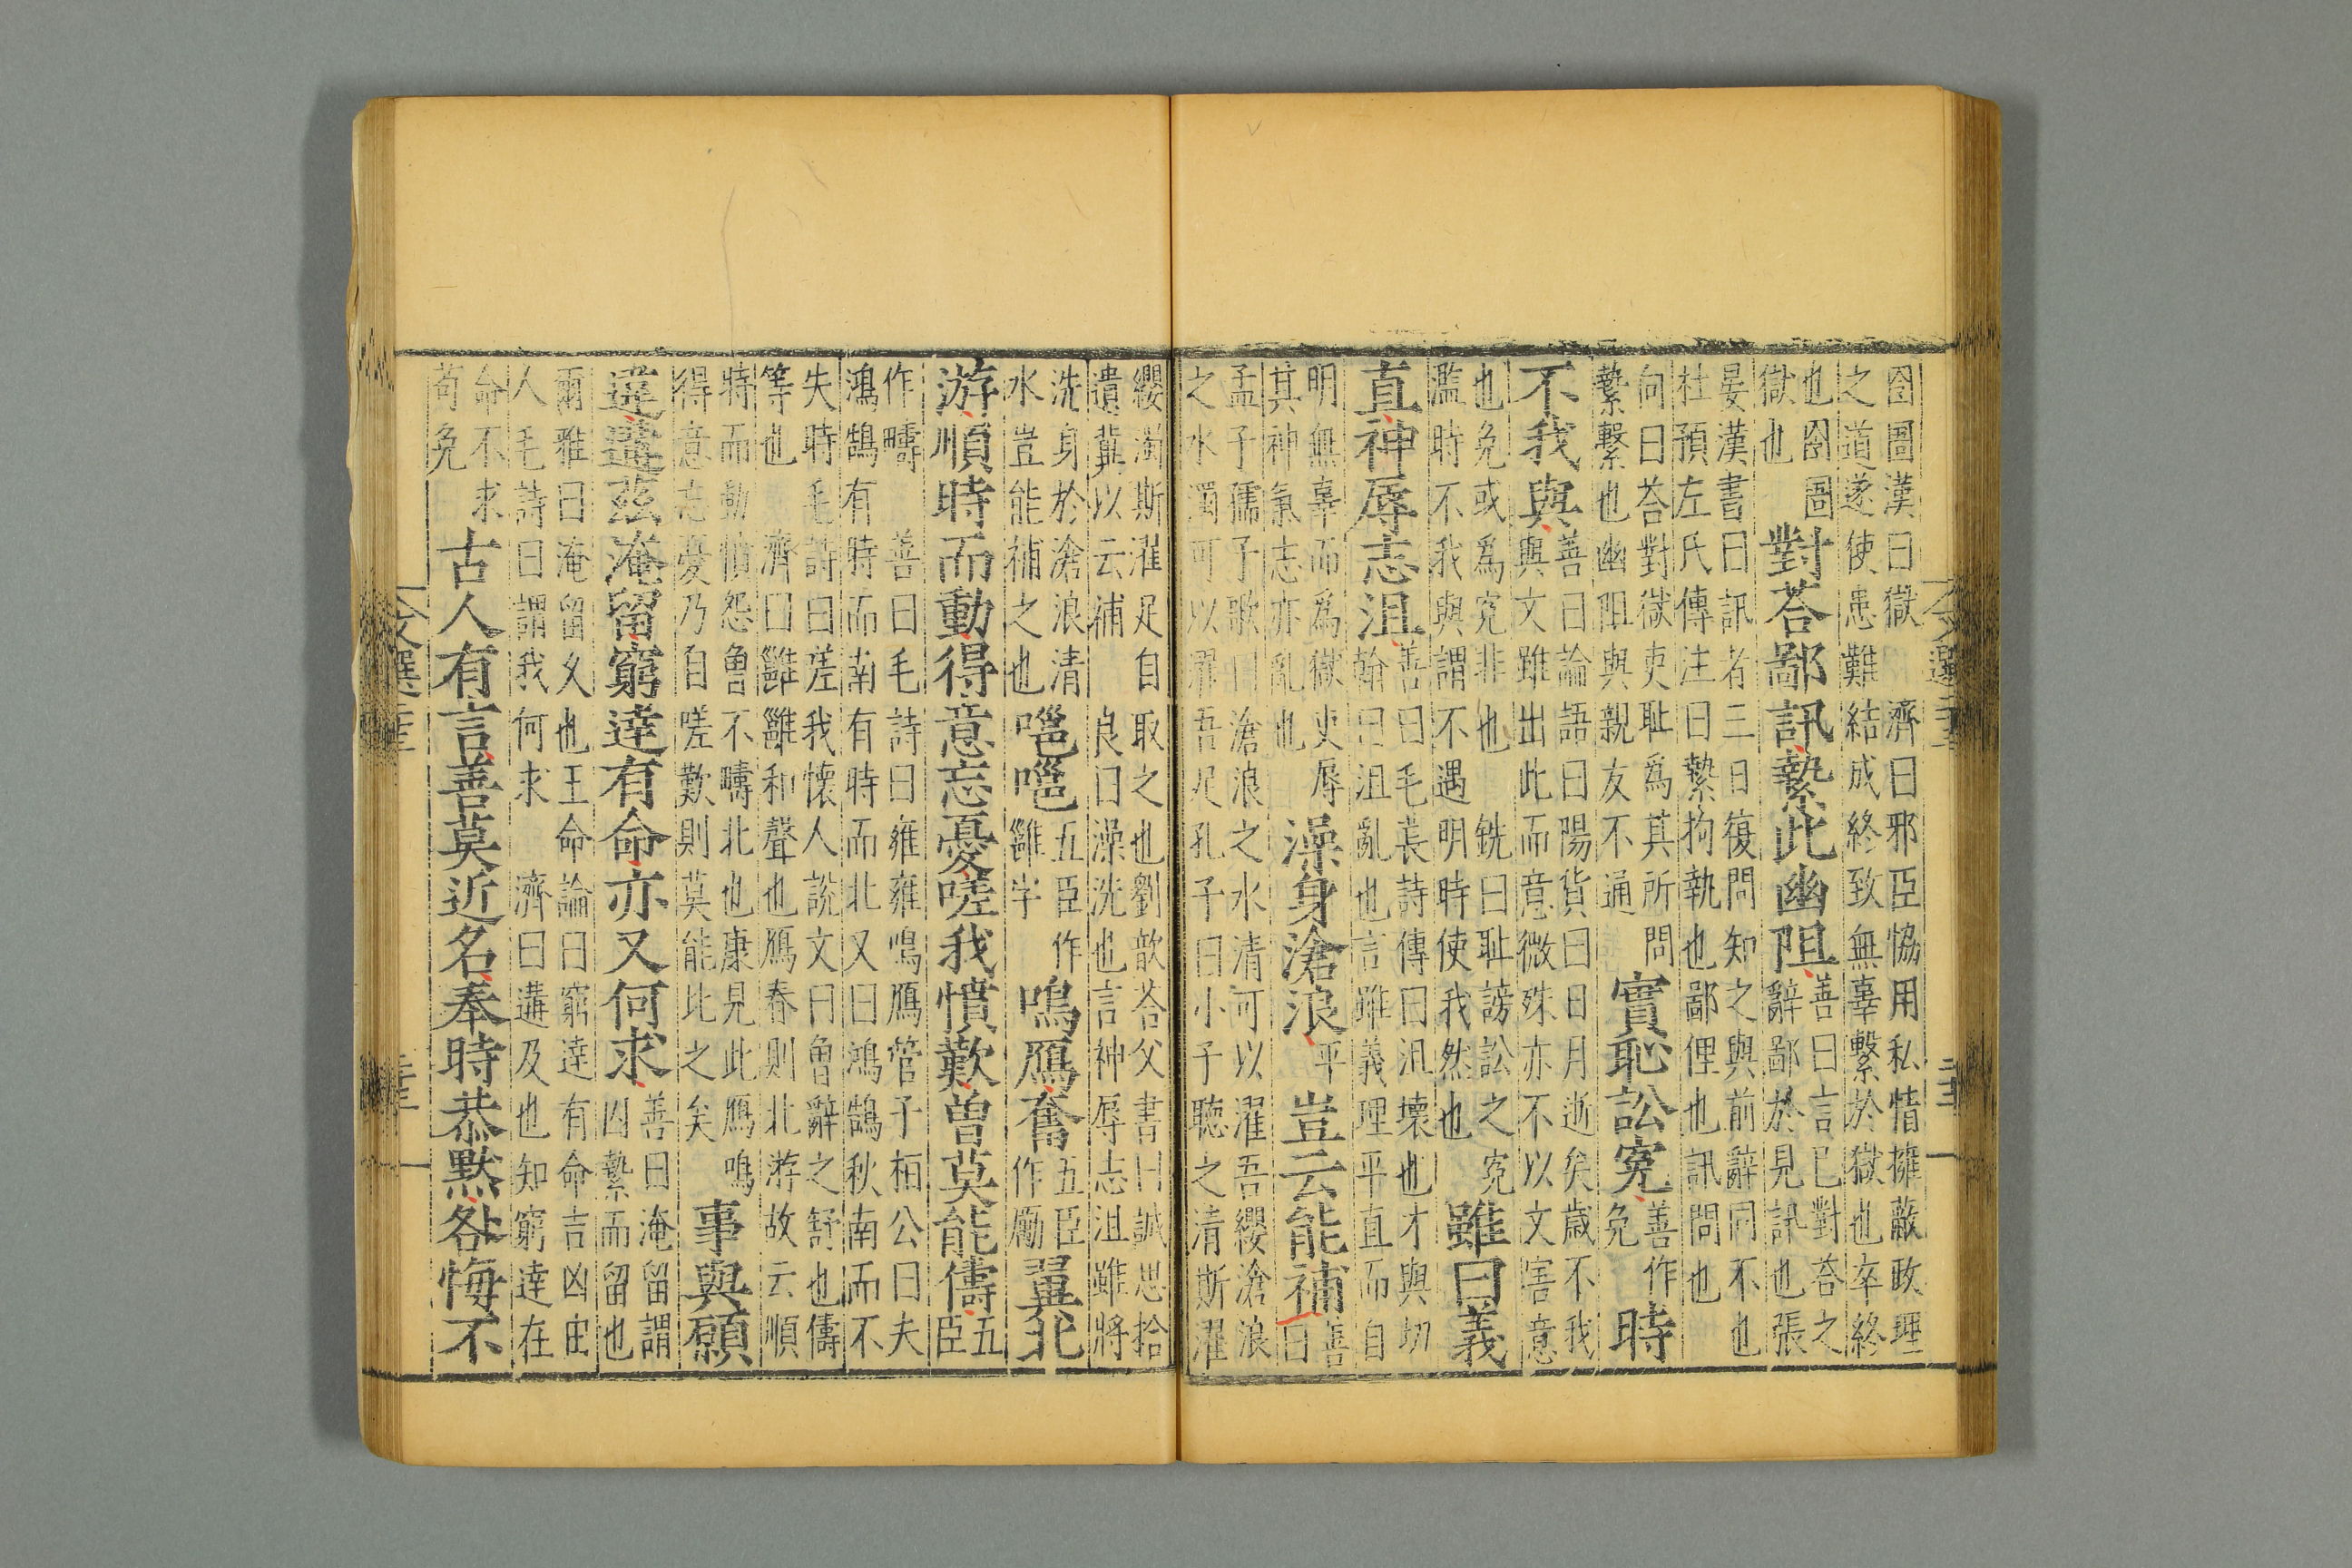 囹圄漢曰獄　濟曰邪臣恊用私情擁蔽政理
之道遂使患難結成終致無辜繫於獄也卒終
也囹圄獄也對荅鄙訊縶此幽阻善曰言已對荅之辭鄙於見訊也張
晏漢書曰訊者三日復問知之與前辭同不也
杜預左氏傳注曰縶拘執也鄙俚也訊問也
向曰荅對獄吏耻爲其所問縶繫也幽阻與親友不通實恥訟寃善作免時
不我與善曰論語曰陽貨曰日月逝矣歳不我與文雖出此而意微殊亦不以文害意
也免或爲寃非也　銑曰耻謗訟之寃濫時不我與謂不遇明時使我然也雖曰義
直神辱志沮善曰毛萇詩傳曰沮壊也才與切翰曰沮亂也言雖義理平直而自
明無辜而爲獄吏辱其神氣志亦亂也澡身滄浪平豈云能補善曰
孟子孺子歌曰滄浪之水清可以濯吾纓滄浪
之水濁可以濯吾足孔子曰小子聽之清斯濯
纓濁斯濯足自取之也劉歆荅父書曰誠思拾
遺兾以云補　良曰澡洗也言神辱志沮雖將
洗身於滄浪清水豈能補之也嗈嗈五臣作雝字鳴鴈奮五臣作勵翼北
游順時而動得意忘憂嗟我憤歎曾莫能儔五臣
作疇　善曰毛詩曰雍雍鳴鴈管子栢公曰夫
鴻鵠有時而南有時而北又曰鴻鵠秋南而不
失時毛詩曰嗟我懷人說文曰魯辭之舒也儔
等也　濟曰雝雝和聲也鴈春則北游故云順
時而動憤怨魯不疇北也康見此鴈鳴得意忘憂乃自嗟歎則莫能比之矣事與願
違遘茲淹留窮達有命亦又何求善曰淹留謂囚縶而留也
爾雅曰淹留久也王命論曰窮達有命吉凶由
人毛詩曰謂我何求　濟曰遘及也知窮達在
命不求苟免古人有言善莫近名奉時恭黙咎悔不
文選